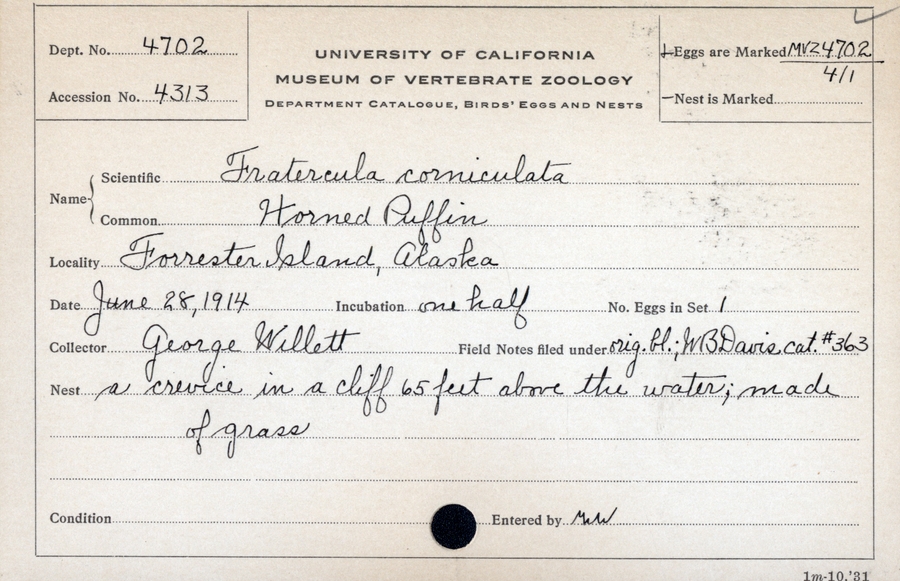 Dept. No. 4702
Accession No. 4313
UNIVERSITY OF CALIFORNIA
MUSEUM OF VERTEBRATE ZOOLOGY
DEPARTMENT CATALOGUE, BIRDS' EGGS AND NESTS
Eggs are Marked MVZ4702
4/1
Nest is Marked
Name
Scientific Fratercula corniculata
Common Horned Puffin
Locality Forrester Island, Alaska
Date June 28, 1914 Incubation one half No. Eggs in Set 1
Collector George Willett Field Notes filed under orig. bl.; WB Davis cat. #363
Nest a crevice in a cliff 65 feet above the water; made
of grass
Condition Entered by
1m-10,'31